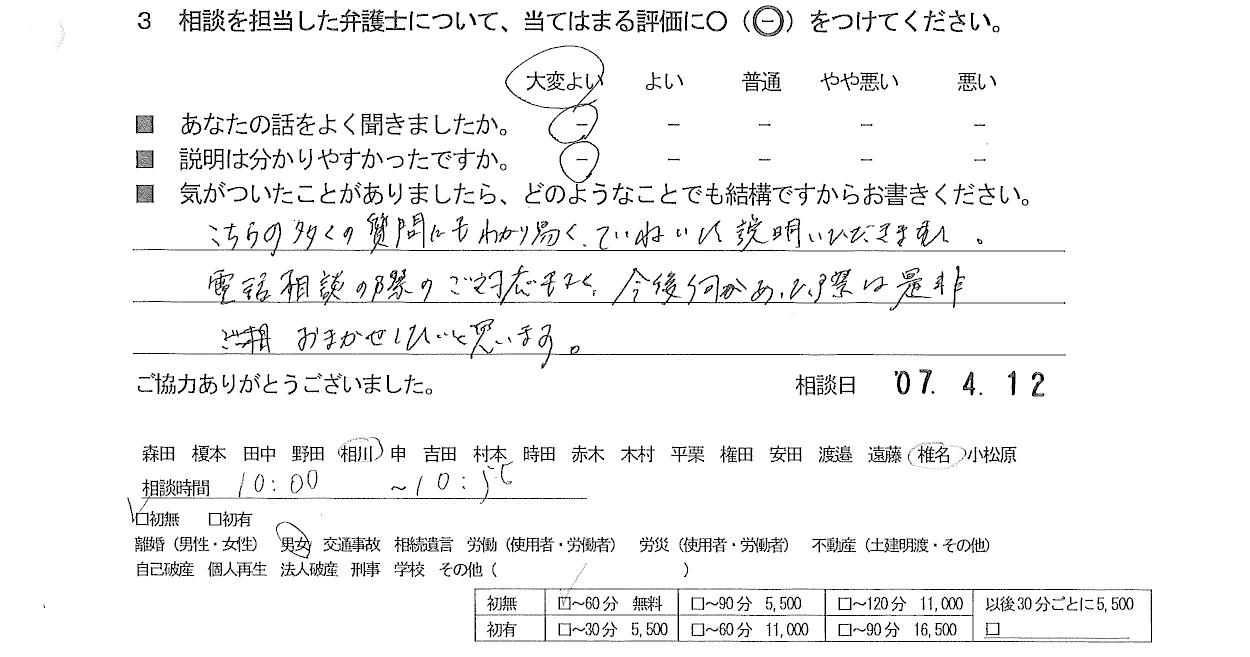 3 相談を担当した弁護士について、当てはまる評価に〇（㊀）をつけてください。
大変よい よい 普通 やや悪い 悪い
■ あなたの話をよく聞きましたか。 － － － － －
■ 説明は分かりやすかったですか。 － － － － －
■ 気がついたことがありましたら、どのようなことでも結構ですからお書きください。
こちらの多くの質問にもわかり易く、ていねいに説明いただきました。
電話相談の際のご対応もよく、今後何かあった際は是非
おまかせしたいと思います。
ご協力ありがとうございました。 相談日 '07. 4. 12
森田 榎本 田中 野田 相川 申 吉田 村本 時田 赤木 木村 平栗 権田 安田 渡邉 遠藤 椎名 小松原
相談時間 10:00 ～10:50
□初無 □初有
離婚（男性・女性） 男女 交通事故 相続遺言 労働（使用者・労働者） 労災（使用者・労働者） 不動産（土建明渡・その他）
自己破産 個人再生 法人破産 刑事 学校 その他（ ）
初無 □～60分 無料 □～90分 5,500 □～120分 11,000 以後30分ごとに5,500
初有 □～30分 5,500 □～60分 11,000 □～90分 16,500 □